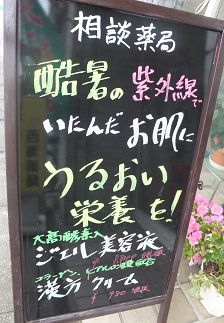 相談薬局
酷暑の紫外線で
いたんだお肌に
うるおい
栄養を!
大高酵素入
ジェル美容液
コラーゲン、ヒアルロン酸配合
漢方クリーム